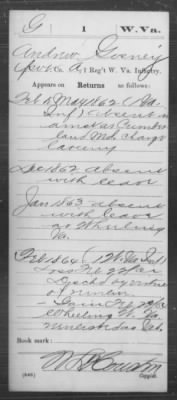 G 1 W. Va.
Andrew Gosney
Pvt Co. A, 1 Reg't W. Va. Infantry.
Appears on Returns as follows:
Feb & May 1862 (Va.
Inf) absent in
arrest at Cumber
land Md. charge
larceny
Dec 1862 absent
with leave
Jan 1863 absent
with leave
at Wheeling
Va.
Feb 1864 (1 W. Va. Inf)
Loss Feb
Disch'd by
of
Gain Feb
Wheeling W. Va.
Vet.
Book mark:
(646) Copyist.